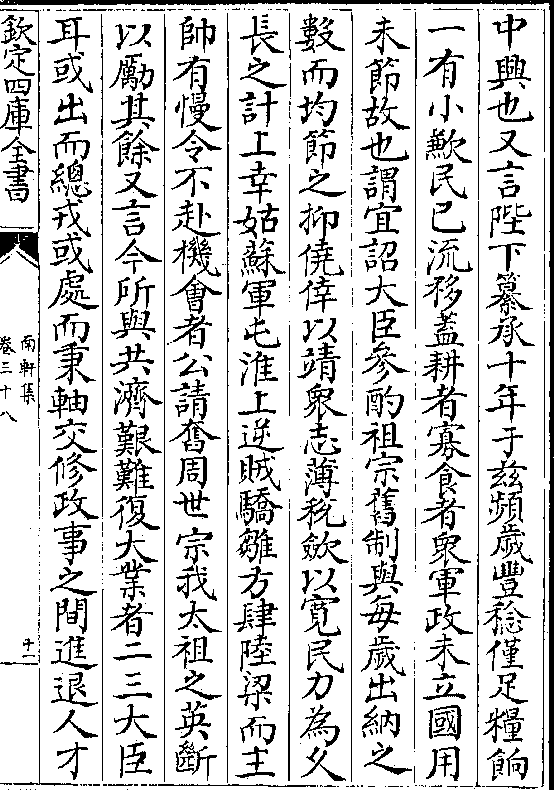 中興也又言陛下纂承十年于兹頻歲豐稔僅足糧餉
一有小歉民已流移蓋耕者寡食者衆軍政未立國用
未節故也謂宜詔大臣參酌祖宗舊制與每歲出納之
數而均節之抑僥倖以靖衆志薄稅歛以寛民力為久
長之計上幸姑蘇軍屯淮上逆賊驕雛方肆陸梁而主
帥有慢令不赴機會者公請奮周世宗我太祖之英斷
以勵其餘又言今所與共濟艱難復大業者二三大臣
耳或出而總戎或處而秉軸交修政事之間進退人才
欽定四庫全書
南軒集
卷三十八
十一